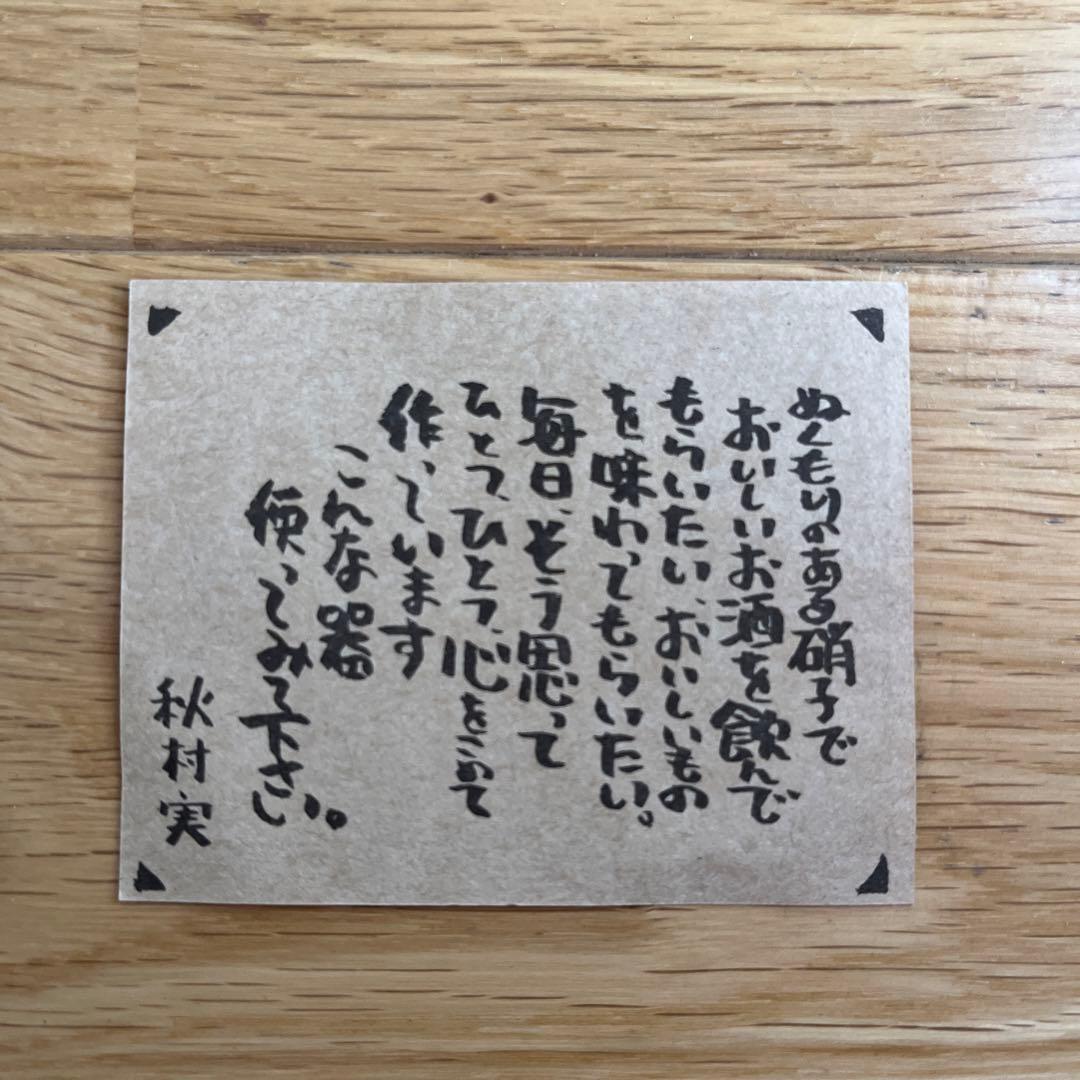 ぬくもりのある硝子で
おいしいお酒を飲んで
もらいたい、おいしいもの
を味わってもらいたい。
毎日、そう思って
ひとつ、ひとつ、心をこめて
作っています
こんな器
使ってみて下さい。
秋村実